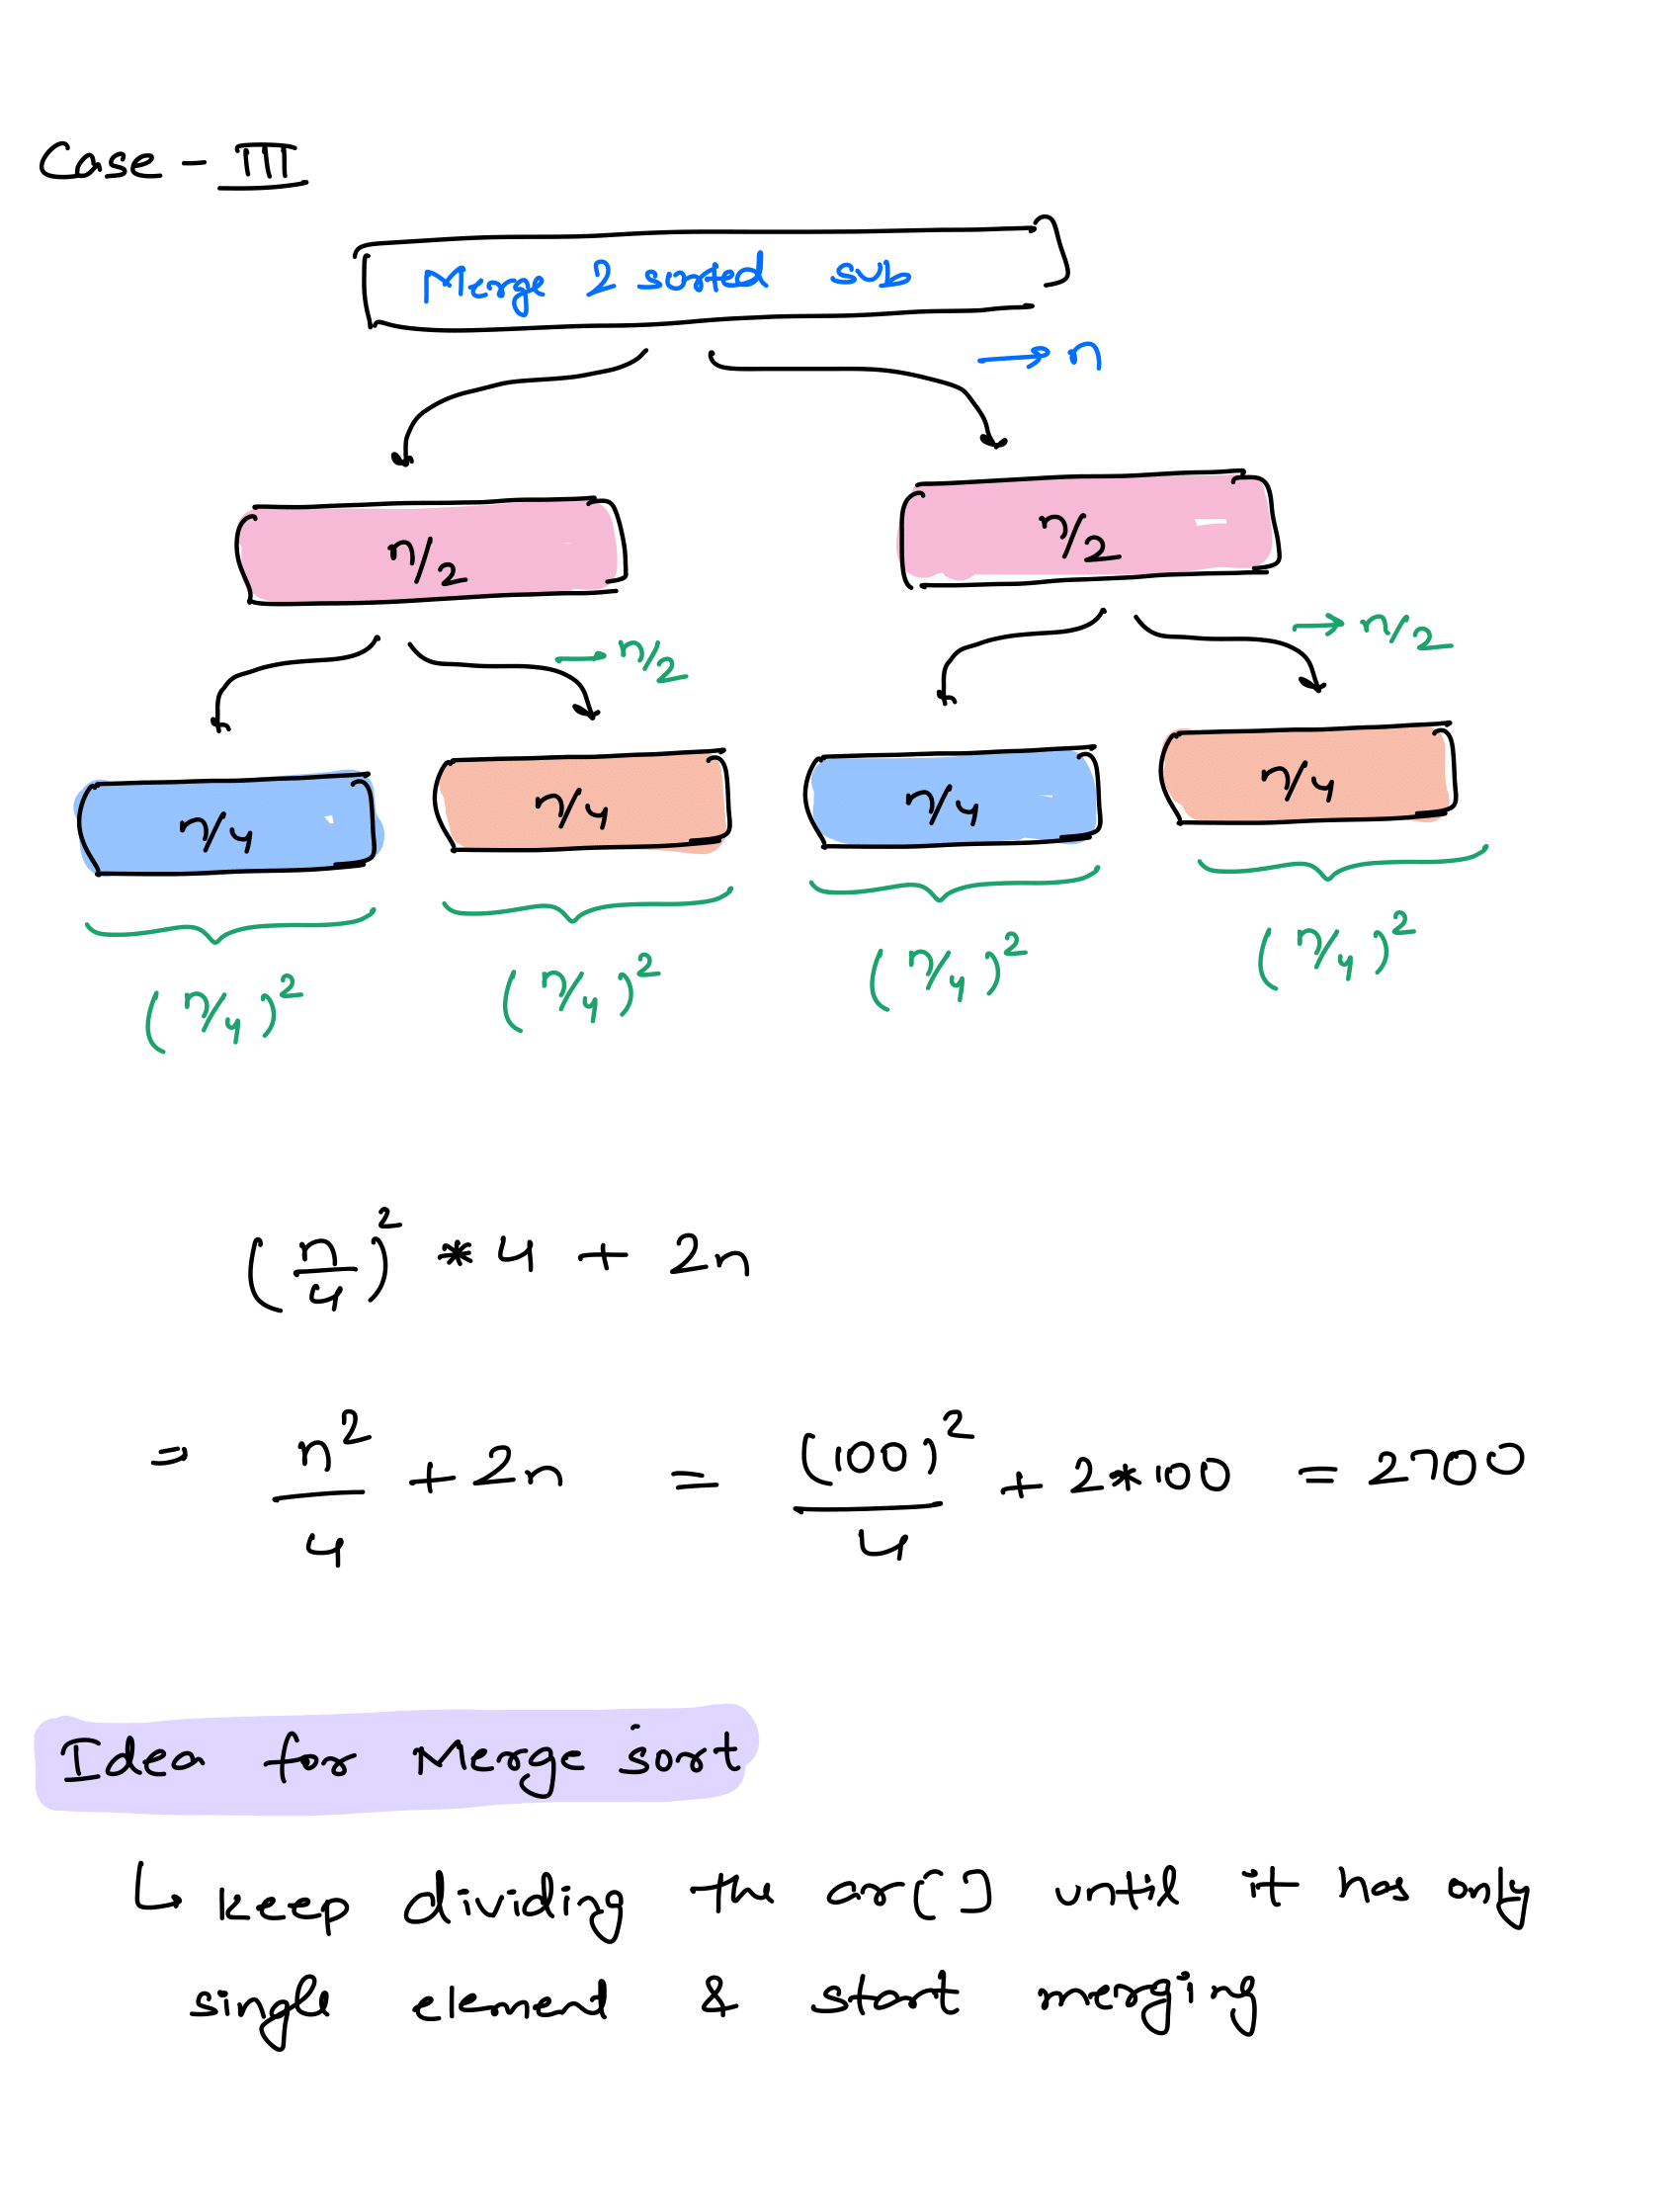 Case - III
Merge 2 sorted sub
→ n
n/2
n/2
→ n/2
→ n/2
n/4
n/4
n/4
n/4
(n/4)²
(n/4)²
(n/4)²
(n/4)²
(n/4)² * 4 + 2n
= n²/4 + 2n = (100)²/4 + 2*100 = 2700
Idea for Merge sort
↳ keep dividing the arr[] until it has only
single element & start merging